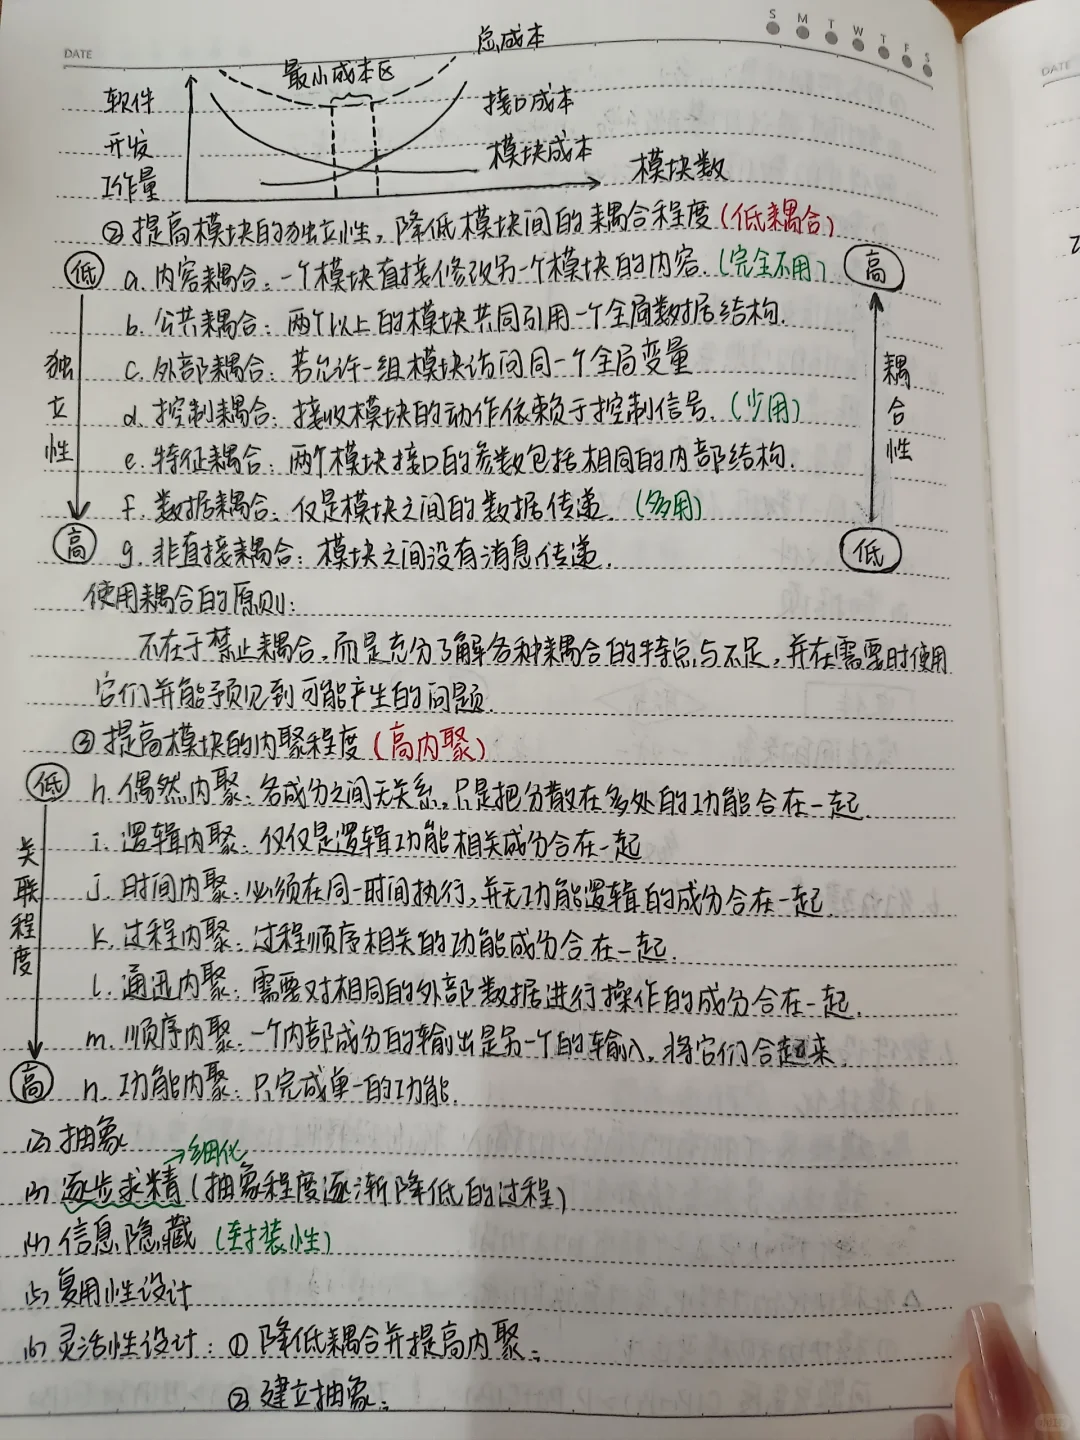 S M T W T F S
DATE
DATE
总成本
最小成本区
软件 接口成本
开发
模块成本
工作量 模块数
② 提高模块的独立性，降低模块间的耦合程度（低耦合）
低 a. 内容耦合：一个模块直接修改另一个模块的内容.（完全不用） 高
b. 公共耦合：两个以上的模块共同引用一个全局数据结构.
c. 外部耦合：若允许一组模块访问同一个全局变量
独立性 耦合性
d. 控制耦合：接收模块的动作依赖于控制信号.（少用）
e. 特征耦合：两个模块接口的参数包括相同的内部结构.
f. 数据耦合：仅是模块之间的数据传递.（多用）
高 g. 非直接耦合：模块之间没有消息传递. 低
使用耦合的原则：
不在于禁止耦合，而是充分了解各种耦合的特点与不足，并在需要时使用
它们并能予预见到可能产生的问题.
③ 提高模块的内聚程度（高内聚）
低 h. 偶然内聚：各成分之间无关系，只是把分散在多处的功能合在一起.
i. 逻辑内聚：仅仅是逻辑功能相关成分合在一起
关联程度
j. 时间内聚：必须在同一时间执行，并无功能逻辑的成分合在一起.
k. 过程内聚：过程顺序相关的功能成分合在一起.
l. 通迅内聚：需要对相同的外部数据进行操作的成分合在一起.
m. 顺序内聚：一个内部成分的输出是另一个的输入，将它们合起来.
高 n. 功能内聚：只完成单一的功能.
(2) 抽象
→细化
(3) 逐步求精（抽象程度逐渐降低的过程）
(4) 信息隐藏（封装性）
(5) 复用性设计
(6) 灵活性设计：① 降低耦合并提高内聚；
② 建立抽象；